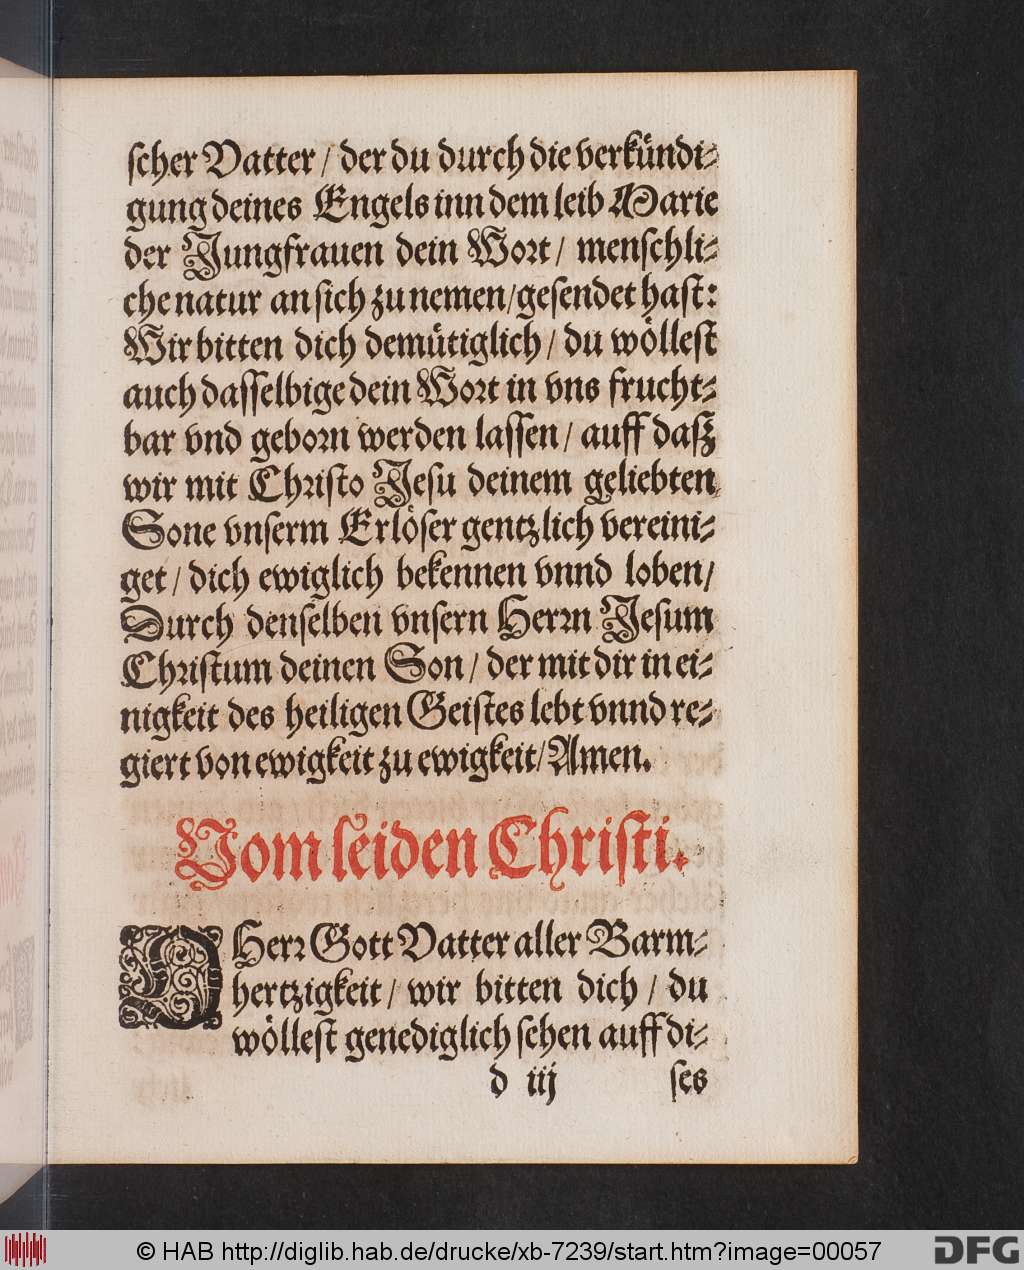 scher Vatter / der du durch die verkündi⸗
gung deines Engels inn dem leib Marie
der Jungfrauen dein Wort / menschli⸗
che natur an sich zu nemen / gesendet hast:
Wir bitten dich demütiglich / du wöllest
auch dasselbige dein Wort in vns frucht⸗
bar vnd geborn werden lassen / auff daß
wir mit Christo Jesu deinem geliebten
Sone vnserm Erlöser gentzlich vereini⸗
get / dich ewiglich bekennen vnnd loben /
Durch denselben vnsern Herrn Jesum
Christum deinen Son / der mit dir in ei⸗
nigkeit des heiligen Geistes lebt vnnd re⸗
giert von ewigkeit zu ewigkeit / Amen.
Vom leiden Christi.
O Herr Gott Vatter aller Barm⸗
hertzigkeit / wir bitten dich / du
wöllest genediglich sehen auff di⸗
d iij ses
© HAB http://diglib.hab.de/drucke/xb-7239/start.htm?image=00057
DFG